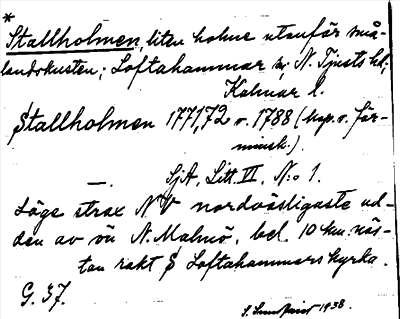 *
Stallholmen, liten holme utanför små-
landskusten; Loftahammar sn; N. Tjusts hd;
Kalmar l.
Stallholmen 1771,72 o. 1788 (kop. o. för-
minsk.)
— SjA, Litt. III, N:o 1.
Läge strax NV nordvästligaste ud-
den av ön N. Malmö, bel. 10 km. näs-
tan rakt S Loftahammars kyrka.
G. 37.
1938.